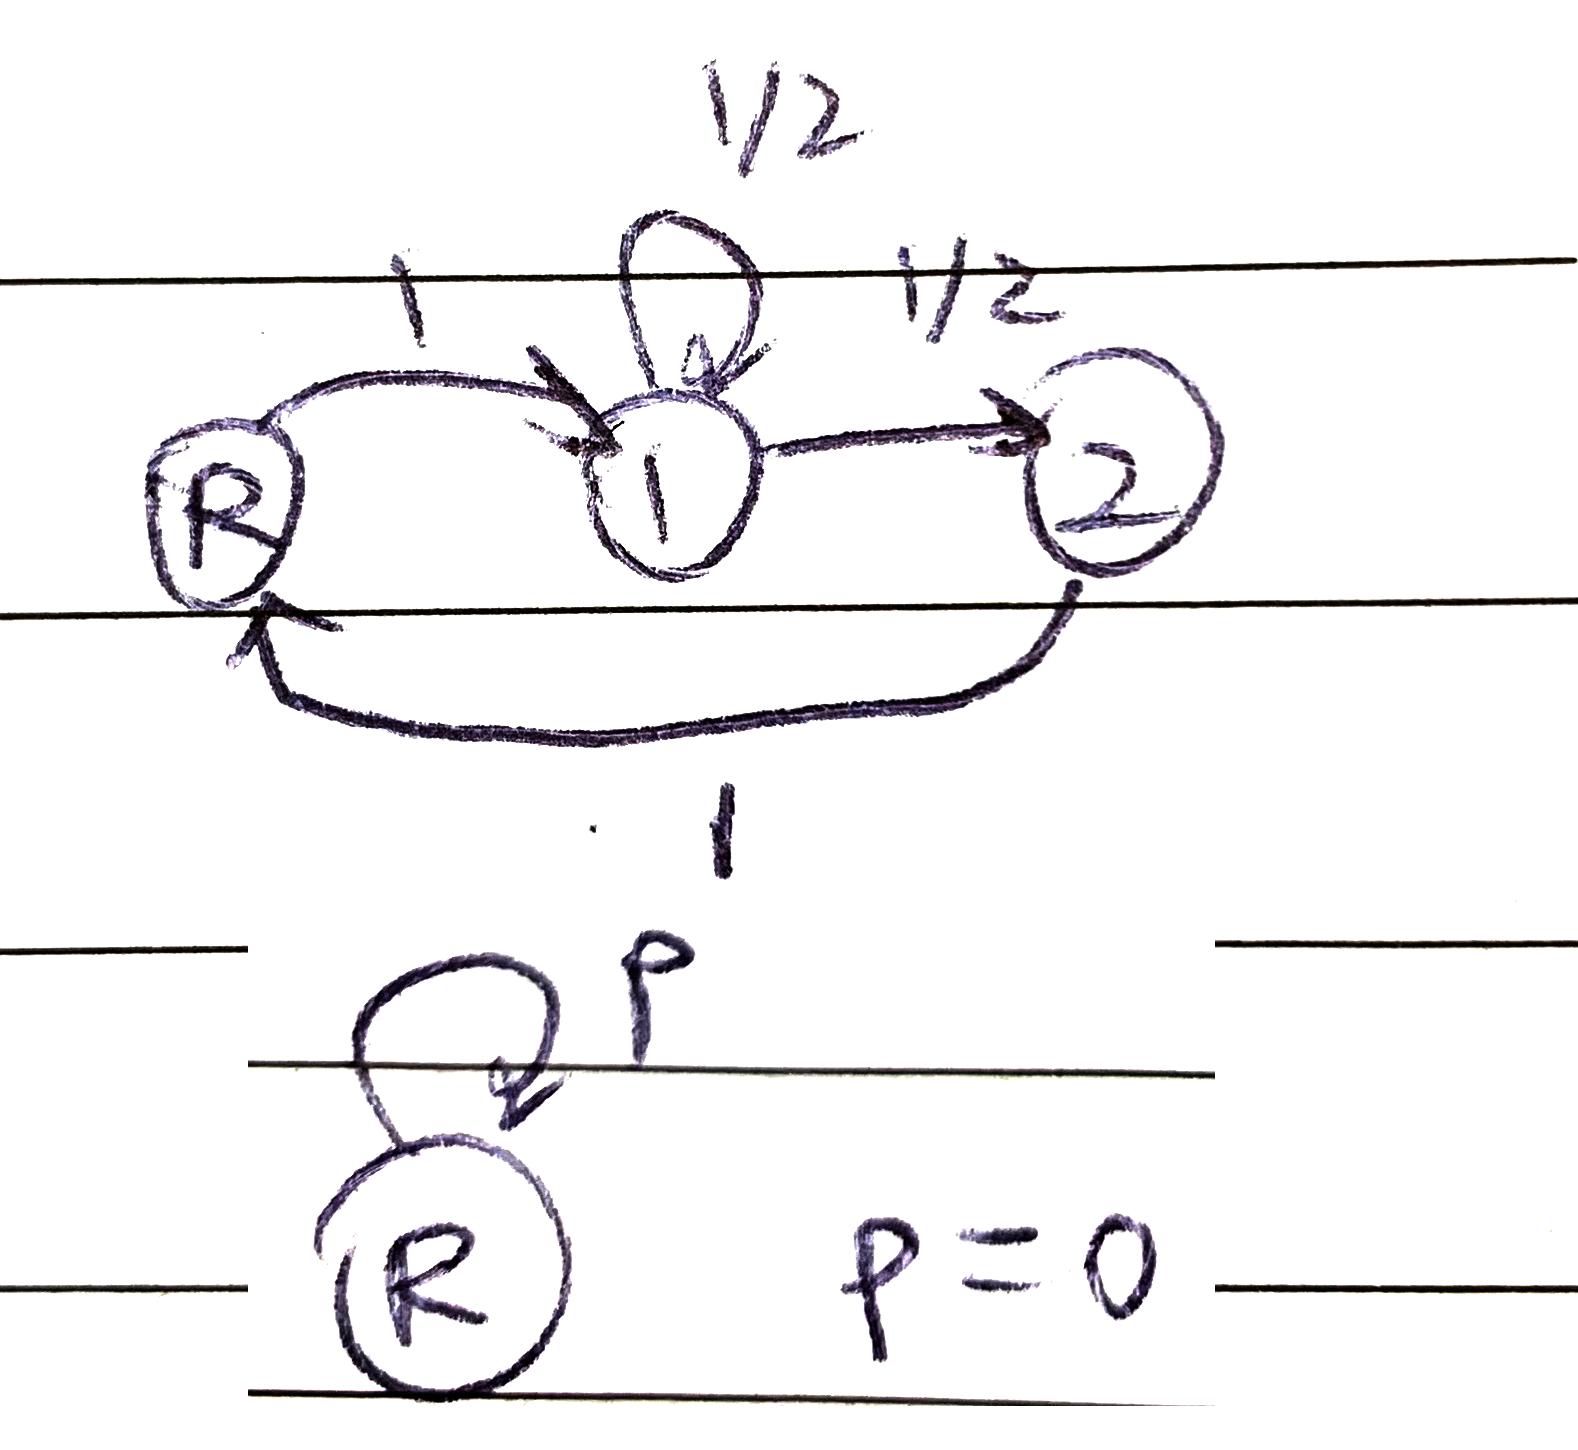 1/2
1 1/2
R 1 2
1
P
R P = 0